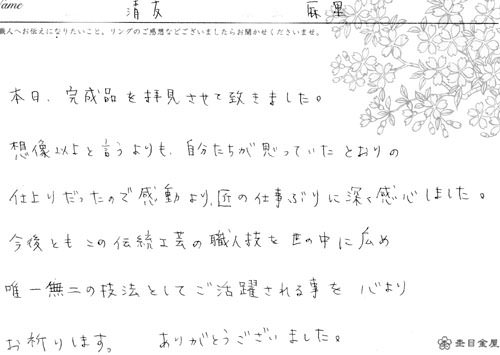 Name 清友 麻里
職人へお伝えになりたいこと。リングのご感想などございましたらお聞かせくださいませ。
本日、完成品を拝見させて致きました。
想像以上と言うよりも、自分たちが思っていたとおりの
仕上りだったので感動より、匠の仕事ぶりに深く感心しました。
今後ともこの伝統工芸の職人技を世の中に広め
唯一無二の技法としてご活躍される事を心より
お祈りします。 ありがとうございました。
杢目金屋